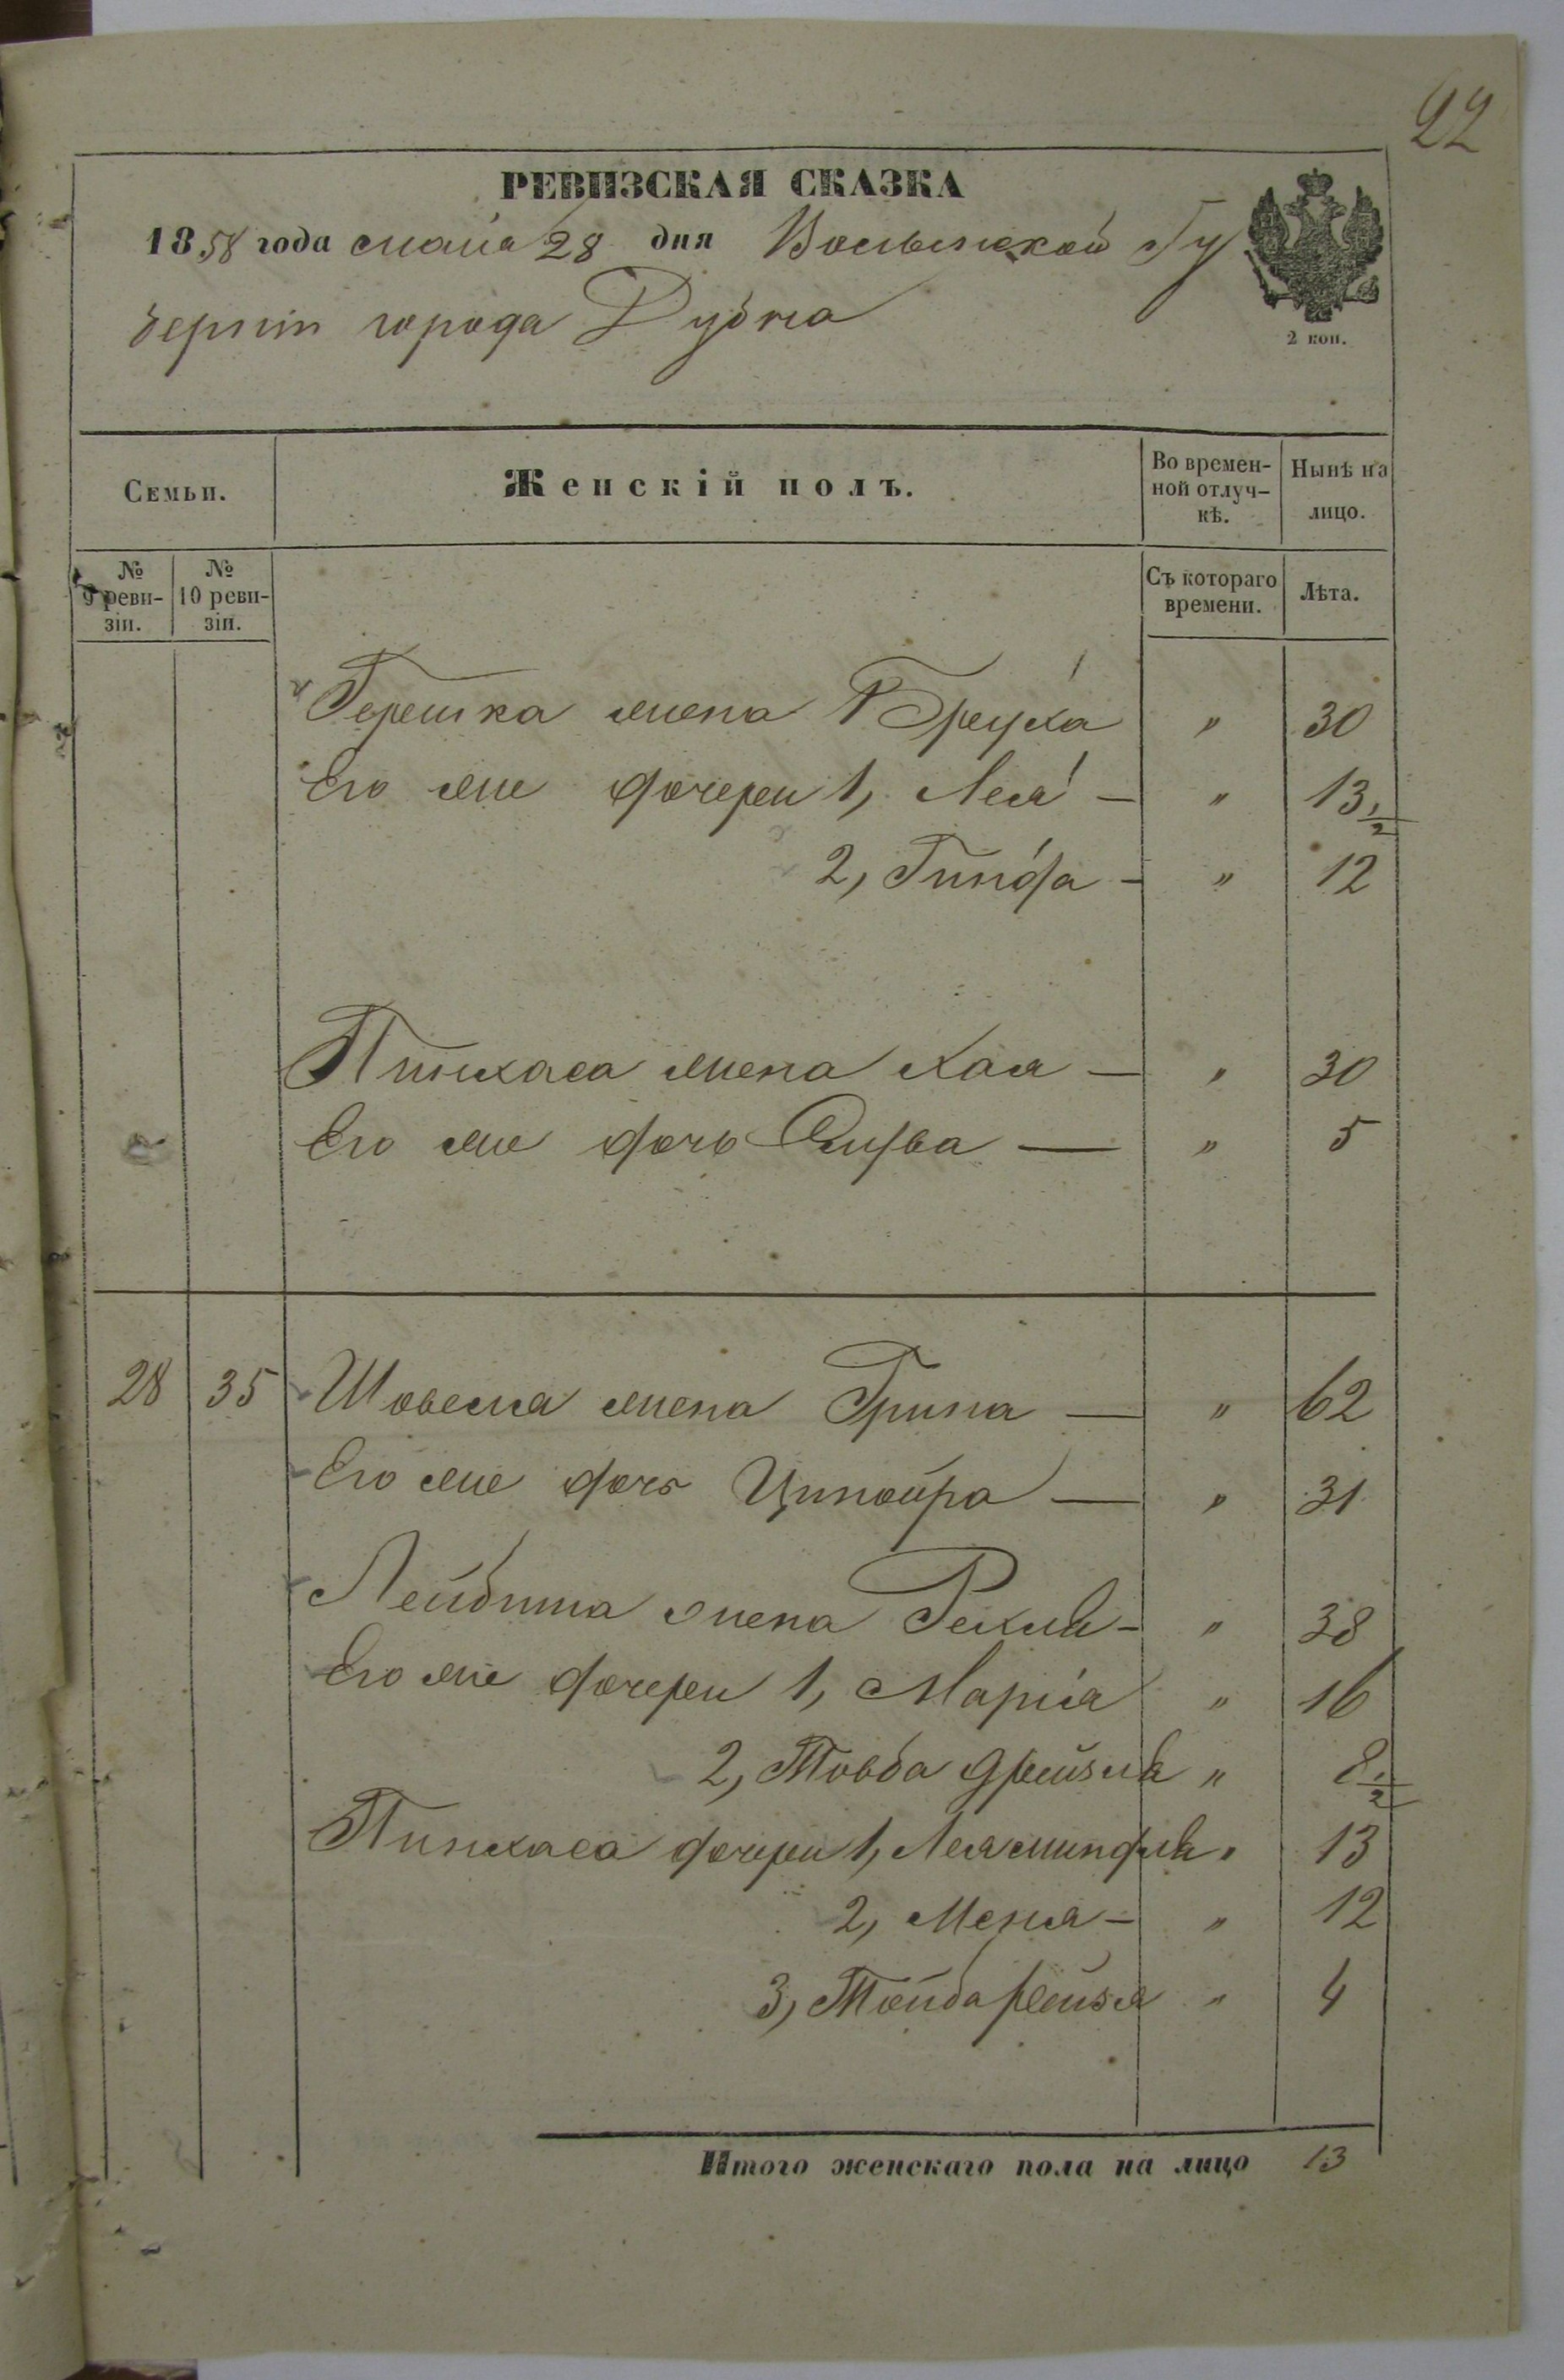 22
РЕВИЗСКАЯ СКАЗКА
1858 года маия 28 дня Волынской Гу
берніи города Дубна
2 коп.
Семьи.
Женскій полъ.
Во времен-
ной отлуч-
кѣ.
Нынѣ на
лицо.
№
9 реви-
зіи.
№
10 реви-
зіи.
Съ котораго
времени.
Лѣта.
Гершка жена Бруха " 30
Его же дочери 1, Лея — " 13 1/2
2, Гинда — " 12
Пинхаса жена Хая — " 30
Его же дочь — " 5
28 35 Шовеля жена Грина — " 62
Его же дочь Ципойра — " 31
Лейбиша жена Рехля — " 38
Его же дочери 1, Марія " 16
2, Товба Дрейзля " 8 1/2
Пинхаса дочери 1, Лея миндля " 13
2, Меня — " 12
3, Тойба рейзя " 4
Итого женскаго пола на лицо 13